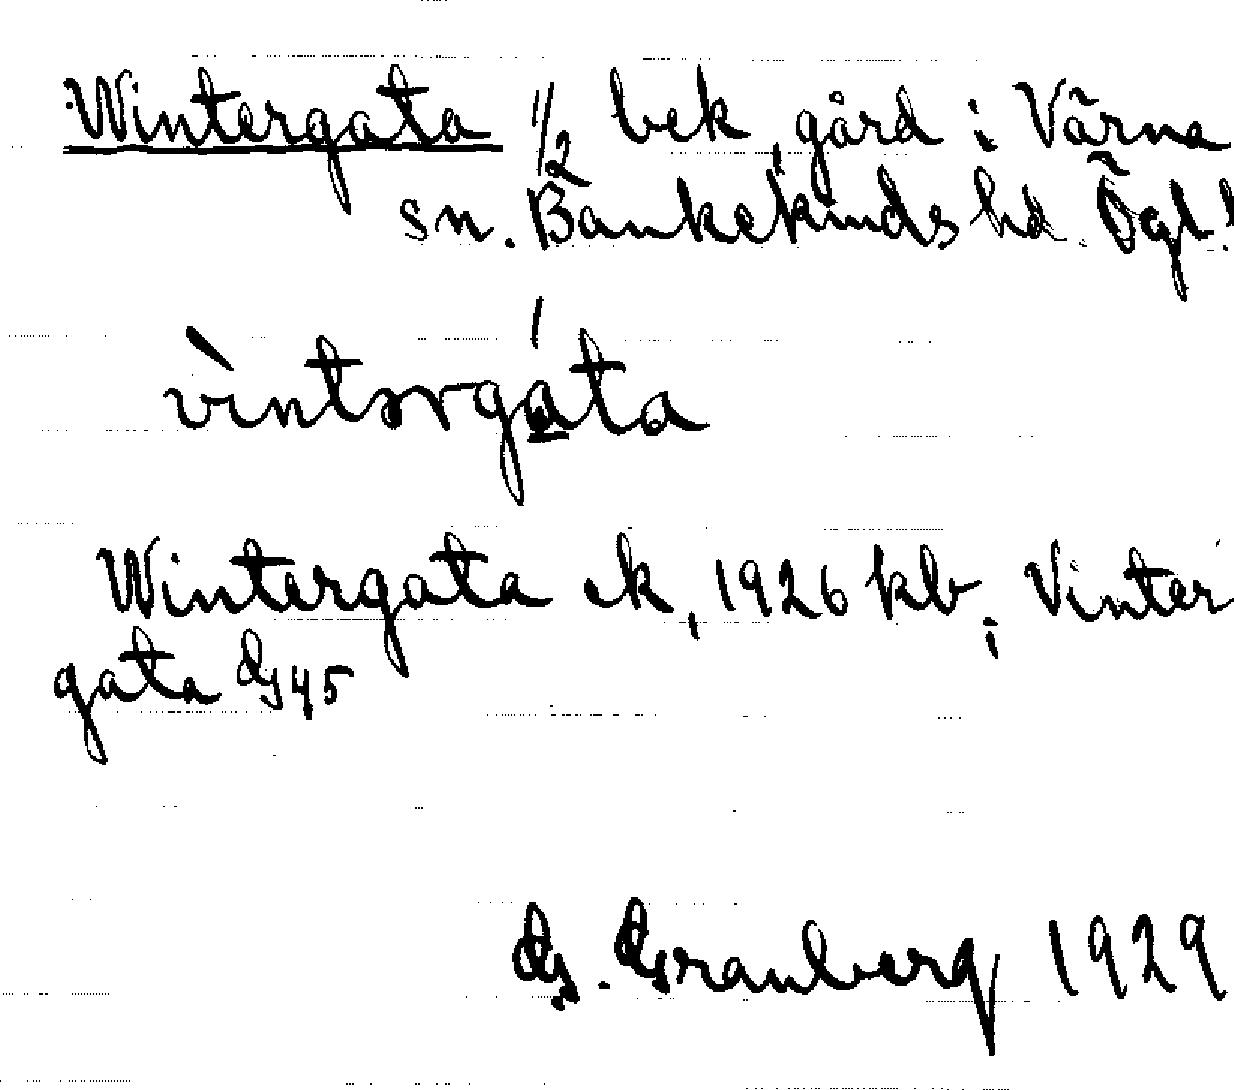 Wintergata 1/2 bek. gård i Värna
sn. Bankekinds hd. Ögl.
vìntərgáta
Wintergata ek, 1926 kb; Vinter
gata G 45
G. Granberg 1929